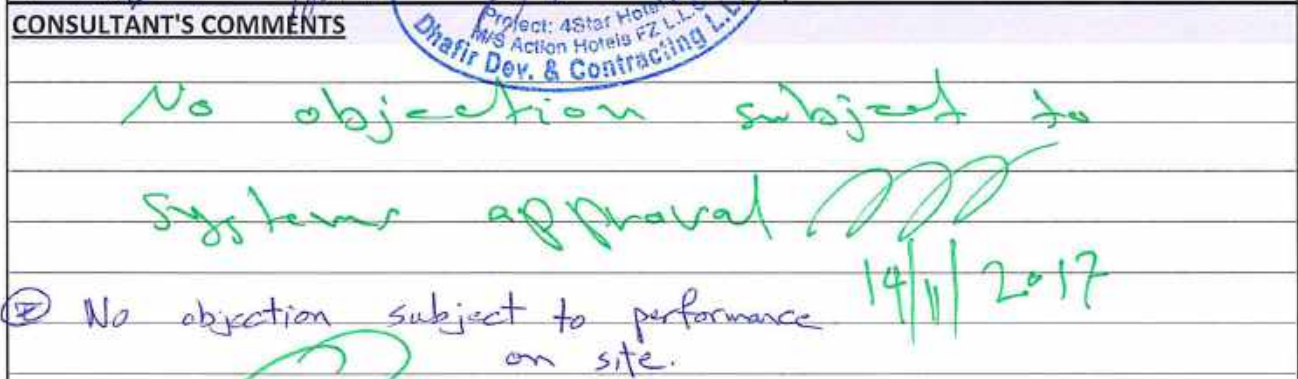 CONSULTANT'S COMMENTS
Project: 4Star Hotel
M/S Action Hotels FZ L.L.C
Dhafir Dev. & Contracting L.L
No objection subject to
systems approval
14/11/2017
No objection subject to performance
on site.